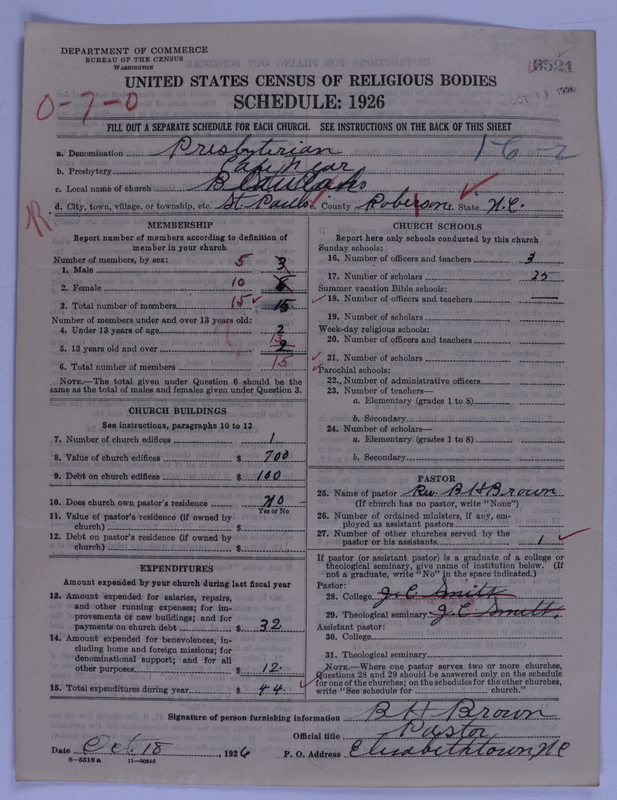 DEPARTMENT OF COMMERCE
BUREAU OF THE CENSUS
WASHINGTON
8521
UNITED STATES CENSUS OF RELIGIOUS BODIES
SCHEDULE: 1926
0-7-0
FILL OUT A SEPARATE SCHEDULE FOR EACH CHURCH. SEE INSTRUCTIONS ON THE BACK OF THIS SHEET
a. Denomination Presbyterian 16-2
b. Presbytery
c. Local name of church
d. City, town, village, or township, etc. St Pauls e. County Robeson f. State N.C.
R.
MEMBERSHIP
Report number of members according to definition of
member in your church
Number of members, by sex:
1. Male 5 3
2. Female 10
3. Total number of members 15 15
Number of members under and over 13 years old:
4. Under 13 years of age 2
5. 13 years old and over 13 2
6. Total number of members 15
NOTE.—The total given under Question 6 should be
same as the total of males and females given under Question 3.
CHURCH BUILDINGS
See instructions, paragraphs 10 to 12
7. Number of church edifices 1
8. Value of church edifices $ 700
9. Debt on church edifices $ 100
10. Does church own pastor's residence No
Yes or No
11. Value of pastor's residence (if owned by
church) $
12. Debt on pastor's residence (if owned by
church) $
EXPENDITURES
Amount expended by your church during last fiscal year
13. Amount expended for salaries, repairs,
and other running expenses; for im-
provements or new buildings; and for
payments on church debt $ 32
14. Amount expended for benevolences, in-
cluding home and foreign missions; for
denominational support; and for all
other purposes $ 12.
15. Total expenditures during year $ 44.
CHURCH SCHOOLS
Report here only schools conducted by this church
Sunday schools:
16. Number of officers and teachers 3
17. Number of scholars 25
Summer vacation Bible schools:
18. Number of officers and teachers —
19. Number of scholars
Week-day religious schools:
20. Number of officers and teachers
21. Number of scholars
Parochial schools:
22. Number of administrative officers
23. Number of teachers—
a. Elementary (grades 1 to 8)
b. Secondary
24. Number of scholars—
a. Elementary (grades 1 to 8)
b. Secondary
PASTOR
25. Name of pastor Rev. B H Brown
(If church has no pastor, write "None")
26. Number of ordained ministers, if any, em-
ployed as assistant pastors
27. Number of other churches served by the
pastor or his assistants 1
If pastor (or assistant pastor) is a graduate of a college or
theological seminary, give name of institution below. (If
not a graduate, write "No" in the space indicated.)
Pastor:
28. College J. C. Smith
29. Theological seminary J. C. Smith.
Assistant pastor:
30. College
31. Theological seminary
NOTE.—Where one pastor serves two or more churches,
Questions 28 and 29 should be answered only on the schedule
for one of the churches; on the schedules for the other churches,
write "See schedule for church."
Signature of person furnishing information B H Brown
Official title Pastor
Date Oct. 18, 1926 P. O. Address Elizabethtown, NC
8-5518 a